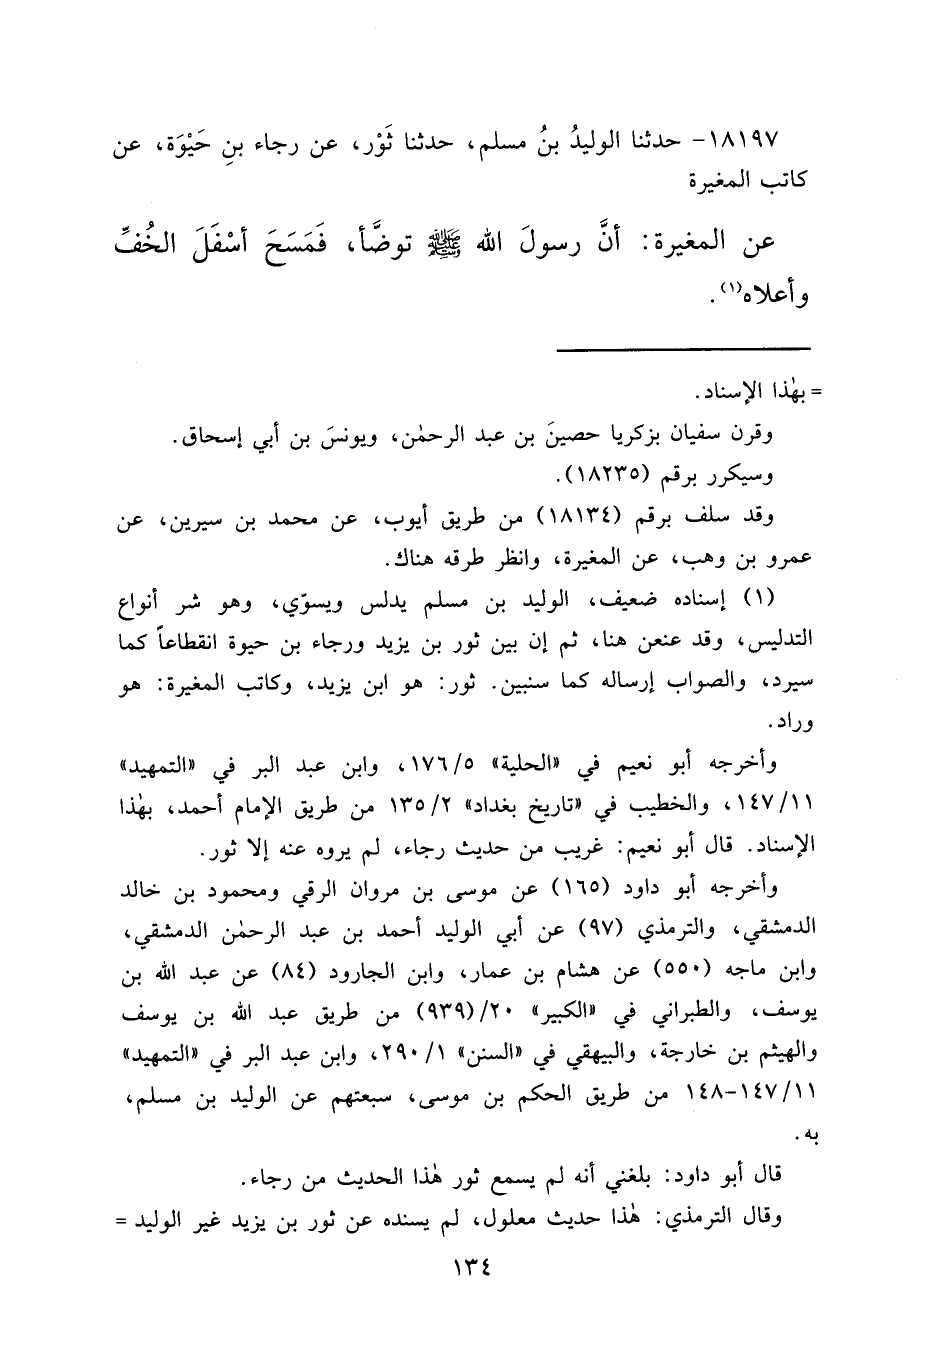 ١٨١٩٧- حدثنا الوليدُ بنُ مسلم، حدثنا ثَوْر، عن رجاء بنِ حَيْوَة، عن
كاتب المغيرة
عن المغيرة: أنَّ رسولَ الله ﷺ توضَّأ، فَمَسَحَ أسْفَلَ الخُفِّ
وأعلاه(١).
= بهٰذا الإسناد.
وقرن سفيان بزكريا حصينَ بن عبد الرحمٰن، ويونسَ بن أبي إسحاق.
وسيكرر برقم (١٨٢٣٥).
وقد سلف برقم (١٨١٣٤) من طريق أيوب، عن محمد بن سيرين، عن
عمرو بن وهب، عن المغيرة، وانظر طرقه هناك.
(١) إسناده ضعيف، الوليد بن مسلم يدلس ويسوّي، وهو شر أنواع
التدليس، وقد عنعن هنا، ثم إن بين ثور بن يزيد ورجاء بن حيوة انقطاعاً كما
سيرد، والصواب إرساله كما سنبين. ثور: هو ابن يزيد، وكاتب المغيرة: هو
وراد.
وأخرجه أبو نعيم في «الحلية» ١٧٦/٥، وابن عبد البر في «التمهيد»
١٤٧/١١، والخطيب في «تاريخ بغداد» ١٣٥/٢ من طريق الإمام أحمد، بهٰذا
الإسناد. قال أبو نعيم: غريب من حديث رجاء، لم يروه عنه إلا ثور.
وأخرجه أبو داود (١٦٥) عن موسى بن مروان الرقي ومحمود بن خالد
الدمشقي، والترمذي (٩٧) عن أبي الوليد أحمد بن عبد الرحمٰن الدمشقي،
وابن ماجه (٥٥٠) عن هشام بن عمار، وابن الجارود (٨٤) عن عبد الله بن
يوسف، والطبراني في «الكبير» ٢٠/(٩٣٩) من طريق عبد الله بن يوسف
والهيثم بن خارجة، والبيهقي في «السنن» ٢٩٠/١، وابن عبد البر في «التمهيد»
١٤٧/١١-١٤٨ من طريق الحكم بن موسى، سبعتهم عن الوليد بن مسلم،
به.
قال أبو داود: بلغني أنه لم يسمع ثور هٰذا الحديث من رجاء.
وقال الترمذي: هٰذا حديث معلول، لم يسنده عن ثور بن يزيد غير الوليد =
١٣٤